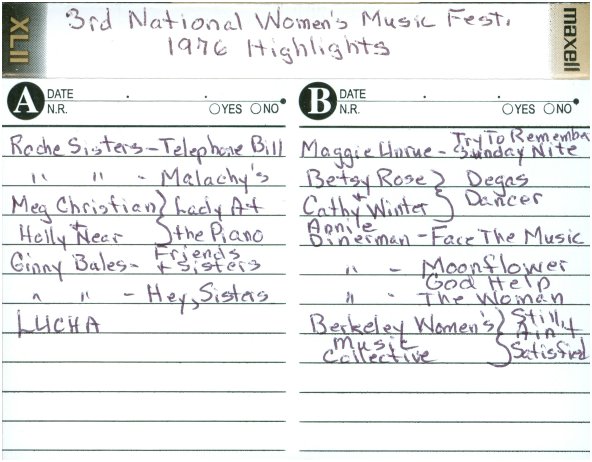 XLII
maxell
3rd National Women's Music Fest.
1976 Highlights
A DATE
N.R. YES NO
Roche Sisters - Telephone Bill
" " - Malachy's
Meg Christian } Lady At
+ Holly Near } the Piano
Ginny Bales - Friends + Sisters
" " - Hey, Sisters
LUCHA
B DATE
N.R. YES NO
Maggie - Try To Remember
Sunday Nite
Betsy Rose } Degas
+ Cathy Winter } Dancer
Annie
Dinerman - Face The Music
" - Moonflower
God Help
" - The Woman
Berkeley Women's } Still
Music } Ain't
Collective } Satisfied